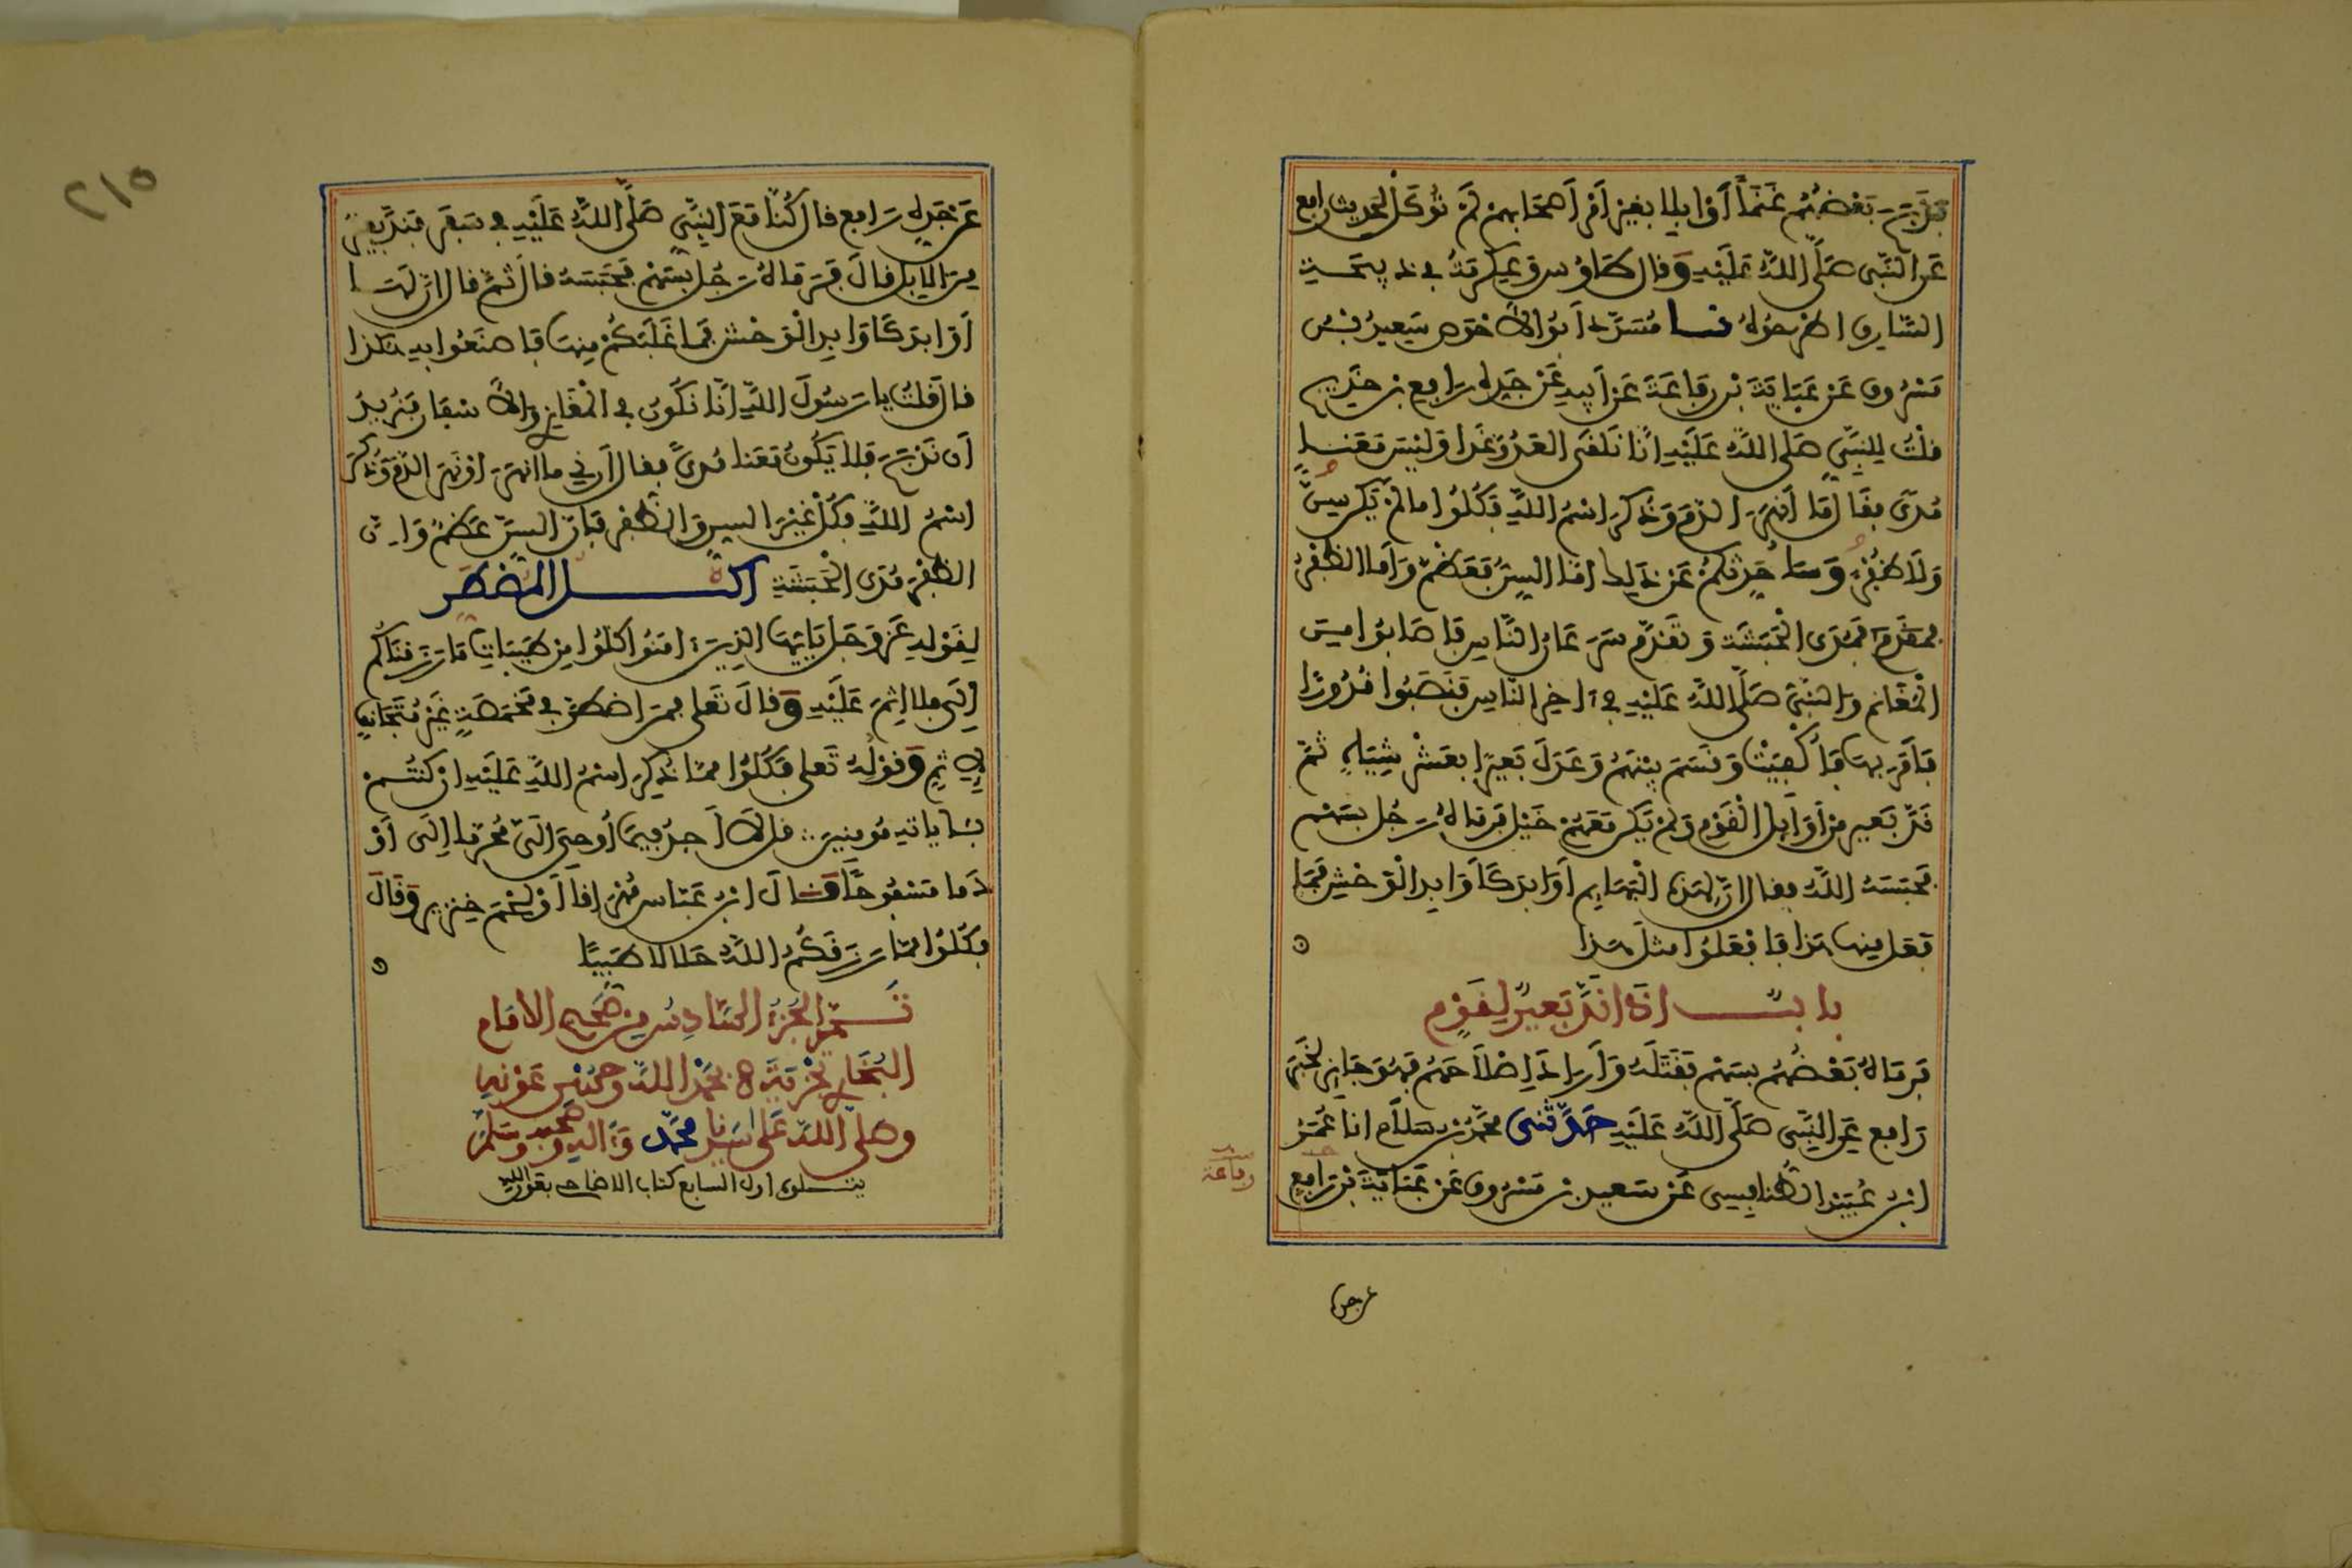 فذبح بعضهم غنما أو ابلا بغير أمر أصحابهم لم توكل لحديث رافع
عن النبي صلى الله عليه وقال طاوس وعكرمة في ذبيحة
السارق اطرحوه نا مسدد أبو الأحوص سعيد بن
مسروق عن عباية بن رفاعة عن أبيه عن جده رافع بن خديج
قلت للنبي صلى الله عليه انا نلقى العدو غدا وليس معنا
مدى فقال ما أنهر الدم وذكر اسم الله فكلوا ما لم يكن سن
ولا ظفر وسأحدثكم عن ذلك اما السن فعظم وأما الظفر
فمدى الحبشة وتقدم سرعان الناس فأصابوا من
المغانم والنبي صلى الله عليه في آخر الناس فنصبوا قدورا
فأمر بها فأكفيت وقسم بينهم وعدل بعيرا بعشر شياه ثم
ند بعير من أوايل القوم ولم يكن معهم خيل فرماه رجل بسهم
فحبسه الله فقال ان لهذه البهايم أوابد كأوابد الوحش فما
فعل منها هذا فافعلوا مثل هذا
باب اذا ند بعير لقوم
فرماه بعضهم بسهم فقتله وأراد اصلاحهم فهو جايز لخبر
رافع عن النبي صلى الله عليه حدثني محمد بن سلام انا عمر
ابن عبيد الطنافسي عن سعيد بن مسروق عن عباية بن رافع
رفاعة
عن جده
عن جده رافع قال كنا مع النبي صلى الله عليه في سفر فند بعير
من الابل قال فرماه رجل بسهم فحبسه قال ثم قال ان لها
أوابد كأوابد الوحش فما غلبكم منها فاصنعوا به هكذا
قال قلت يا رسول الله انا نكون في المغازي والأسفار فنريد
أن نذبح فلا يكون معنا مدى فقال أرني ما انهر اونهر الدم وذكر
اسم الله فكل غير السن والظفر فان السن عظم وان
الظفر مدى الحبشة اكل المضطر
لقوله عز وجل يايها الذين امنوا كلوا من طيبات ما رزقناكم
إلى فلا اثم عليه وقال تعلى فمن اضطر في مخمصة غير متجانف
لإثم وقوله تعلى فكلوا مما ذكر اسم الله عليه ان كنتم
باياته مومنين قل لا أجد فيما أوحي الي محرما إلى أو
دما مسفوحا قال ابن عباس مهراقا أو لحم خنزير وقال
فكلوا مما رزقكم الله حلالا طيبا
تم الجزء السادس من صحيح الامام
البخاري بحمد الله وحسن عونه
وصلى الله على سيدنا محمد وآله وصحبه وسلم
يتلوه اول السابع كتاب الاضاحي بقول الله
٢١٥